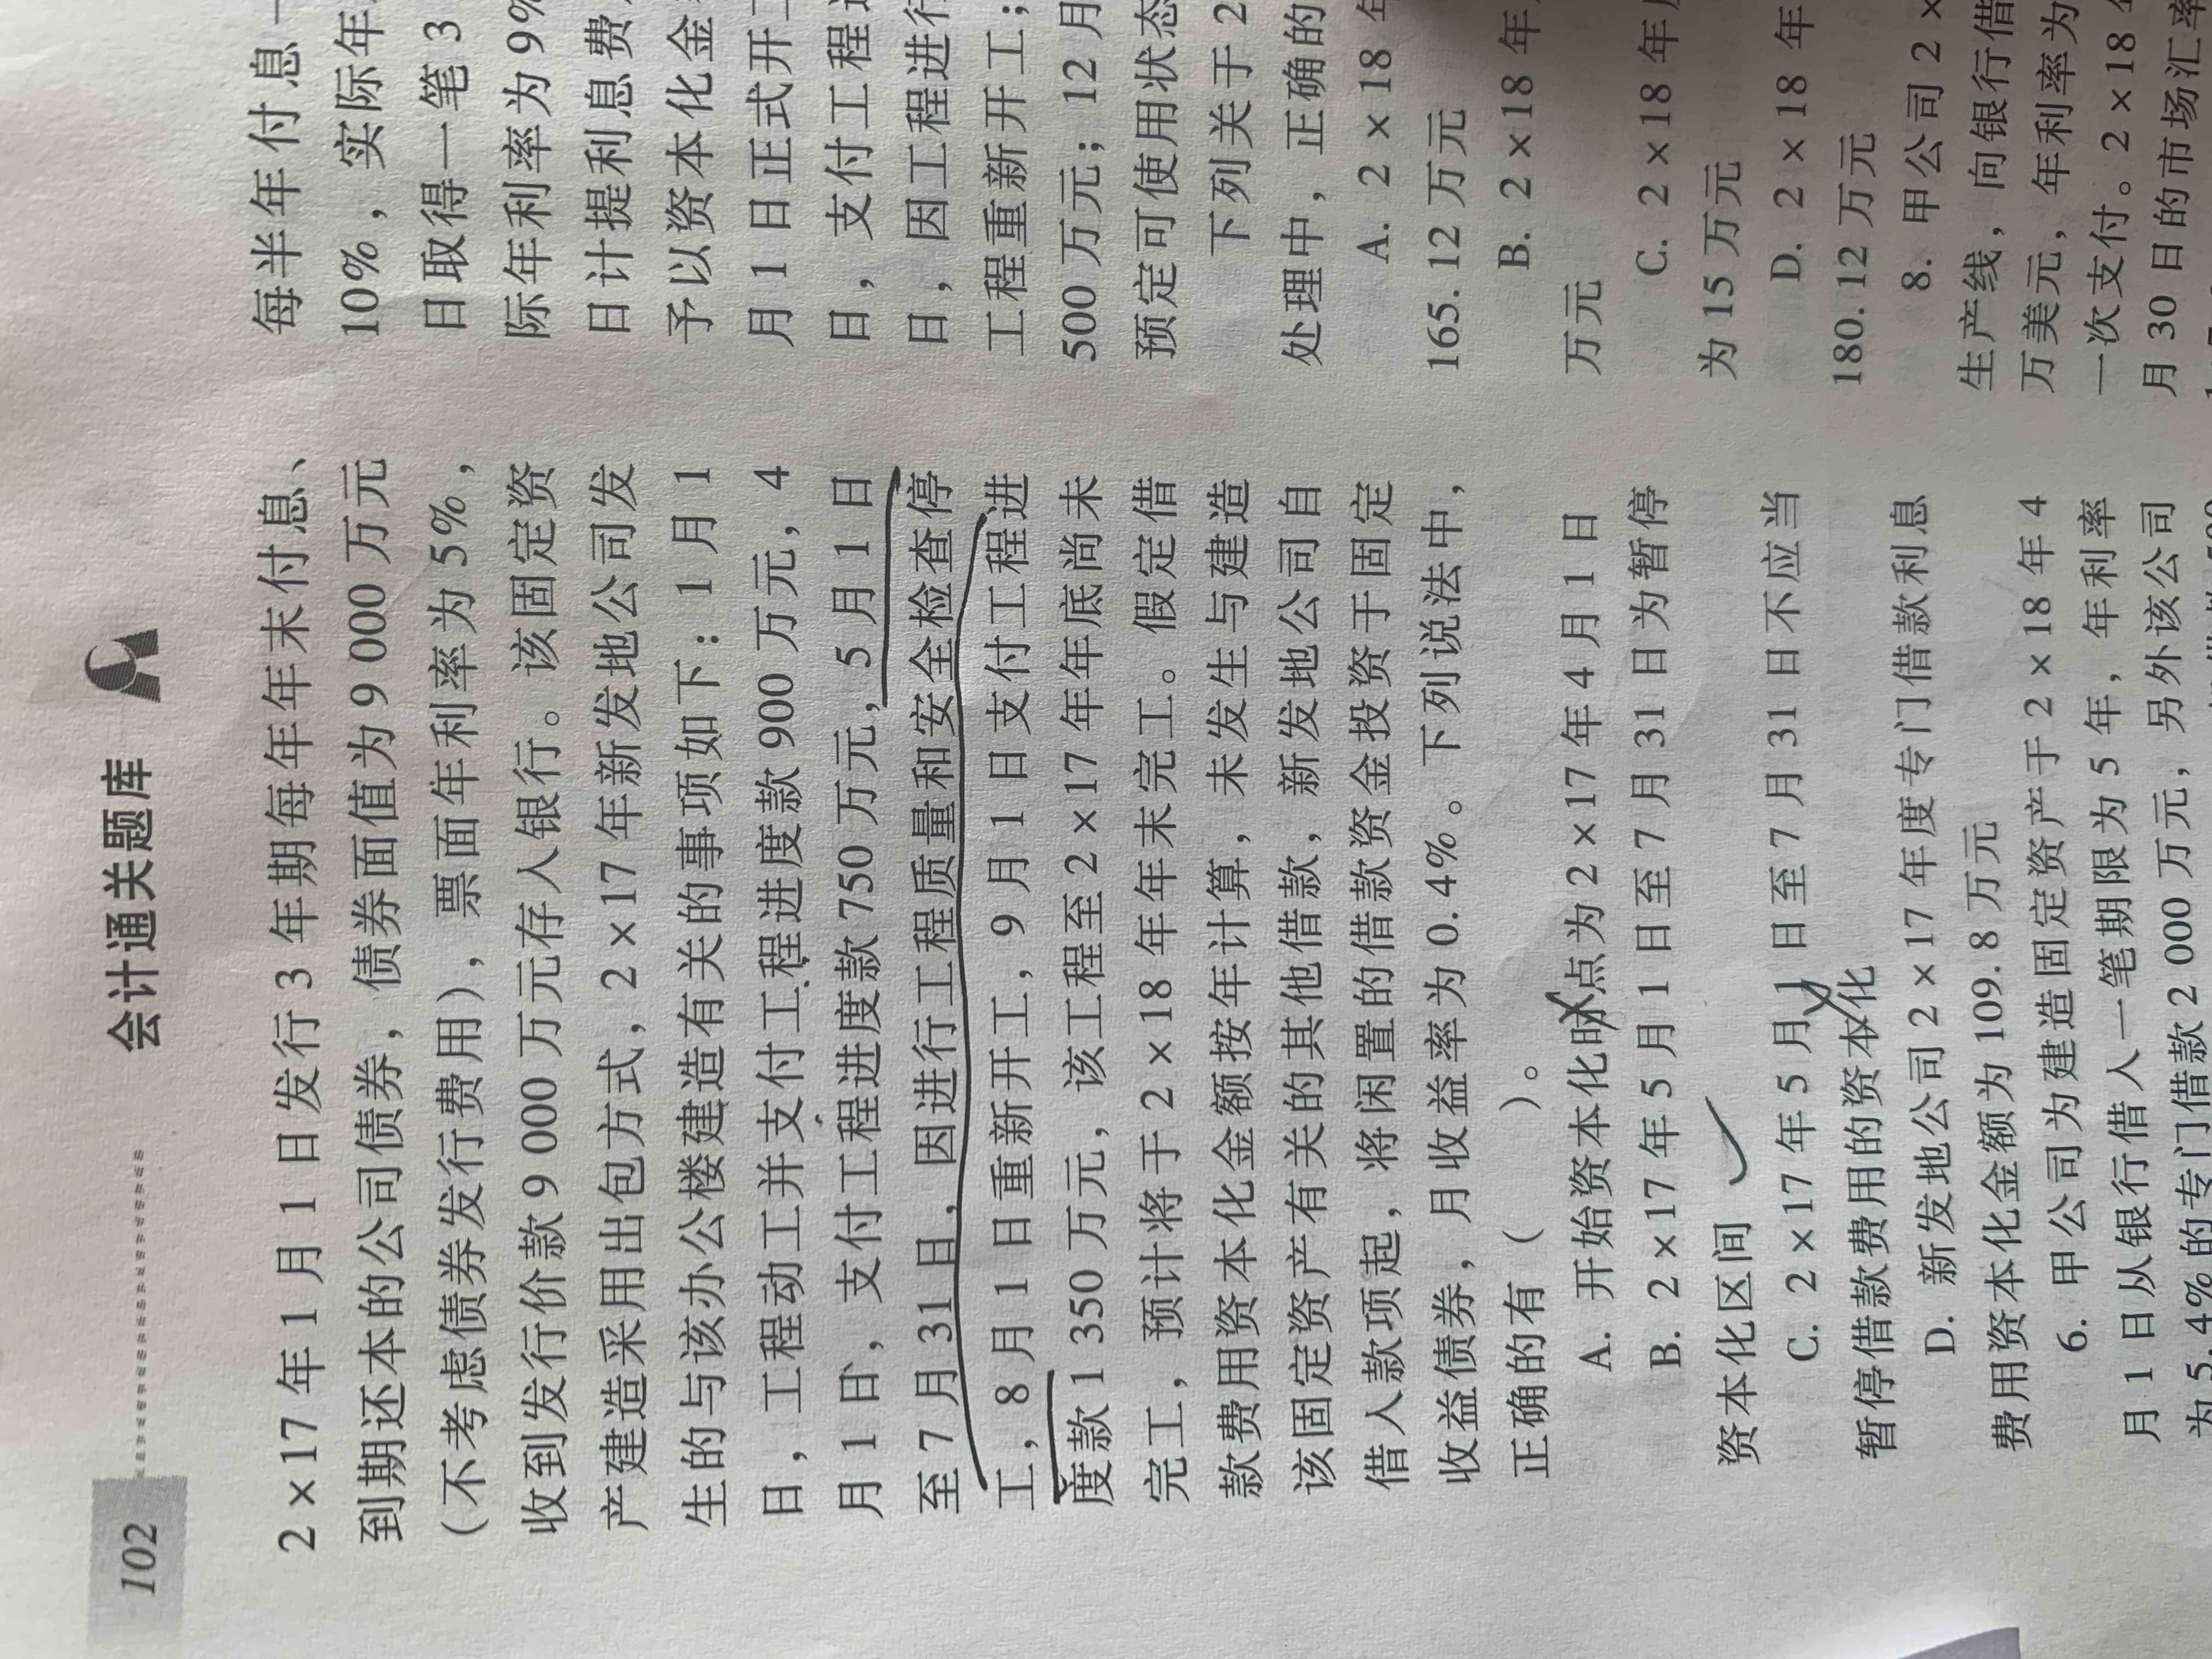 102
会计通关题库
2×17年1月1日发行3年期每年年末付息、
到期还本的公司债券，债券面值为9 000万元
（不考虑债券发行费用），票面年利率为5%，
收到发行价款9 000万元存入银行。该固定资
产建造采用出包方式，2×17年新发地公司发
生的与该办公楼建造有关的事项如下：1月1
日，工程动工并支付工程进度款900万元，4
月1日，支付工程进度款750万元，5月1日
至7月31日，因进行工程质量和安全检查停
工，8月1日重新开工，9月1日支付工程进
度款1 350万元，该工程至2×17年年底尚未
完工，预计将于2×18年年末完工。假定借
款费用资本化金额按年计算，未发生与建造
该固定资产有关的其他借款，新发地公司自
借入款项起，将闲置的借款资金投资于固定
收益债券，月收益率为0.4%。下列说法中，
正确的有（ ）。
A. 开始资本化时点为2×17年4月1日
B. 2×17年5月1日至7月31日为暂停
资本化区间
C. 2×17年5月1日至7月31日不应当
暂停借款费用的资本化
D. 新发地公司2×17年度专门借款利息
费用资本化金额为109.8万元
6. 甲公司为建造固定资产于2×18年4
月1日从银行借入一笔期限为5年，年利率
为5.4%的专门借款2 000万元，另外该公司
每半年付息一
10%，实际年
日取得一笔3
际年利率为9%
日计提利息费
予以资本化金
月1日正式开工
日，支付工程
日，因工程进行
工程重新开工；
500万元；12月
预定可使用状态
下列关于2
处理中，正确的
A. 2×18年
165.12万元
B. 2×18年
万元
C. 2×18年
为15万元
D. 2×18年
180.12万元
8. 甲公司2×
生产线，向银行借
万美元，年利率为
一次支付。2×18
月30日的市场汇率